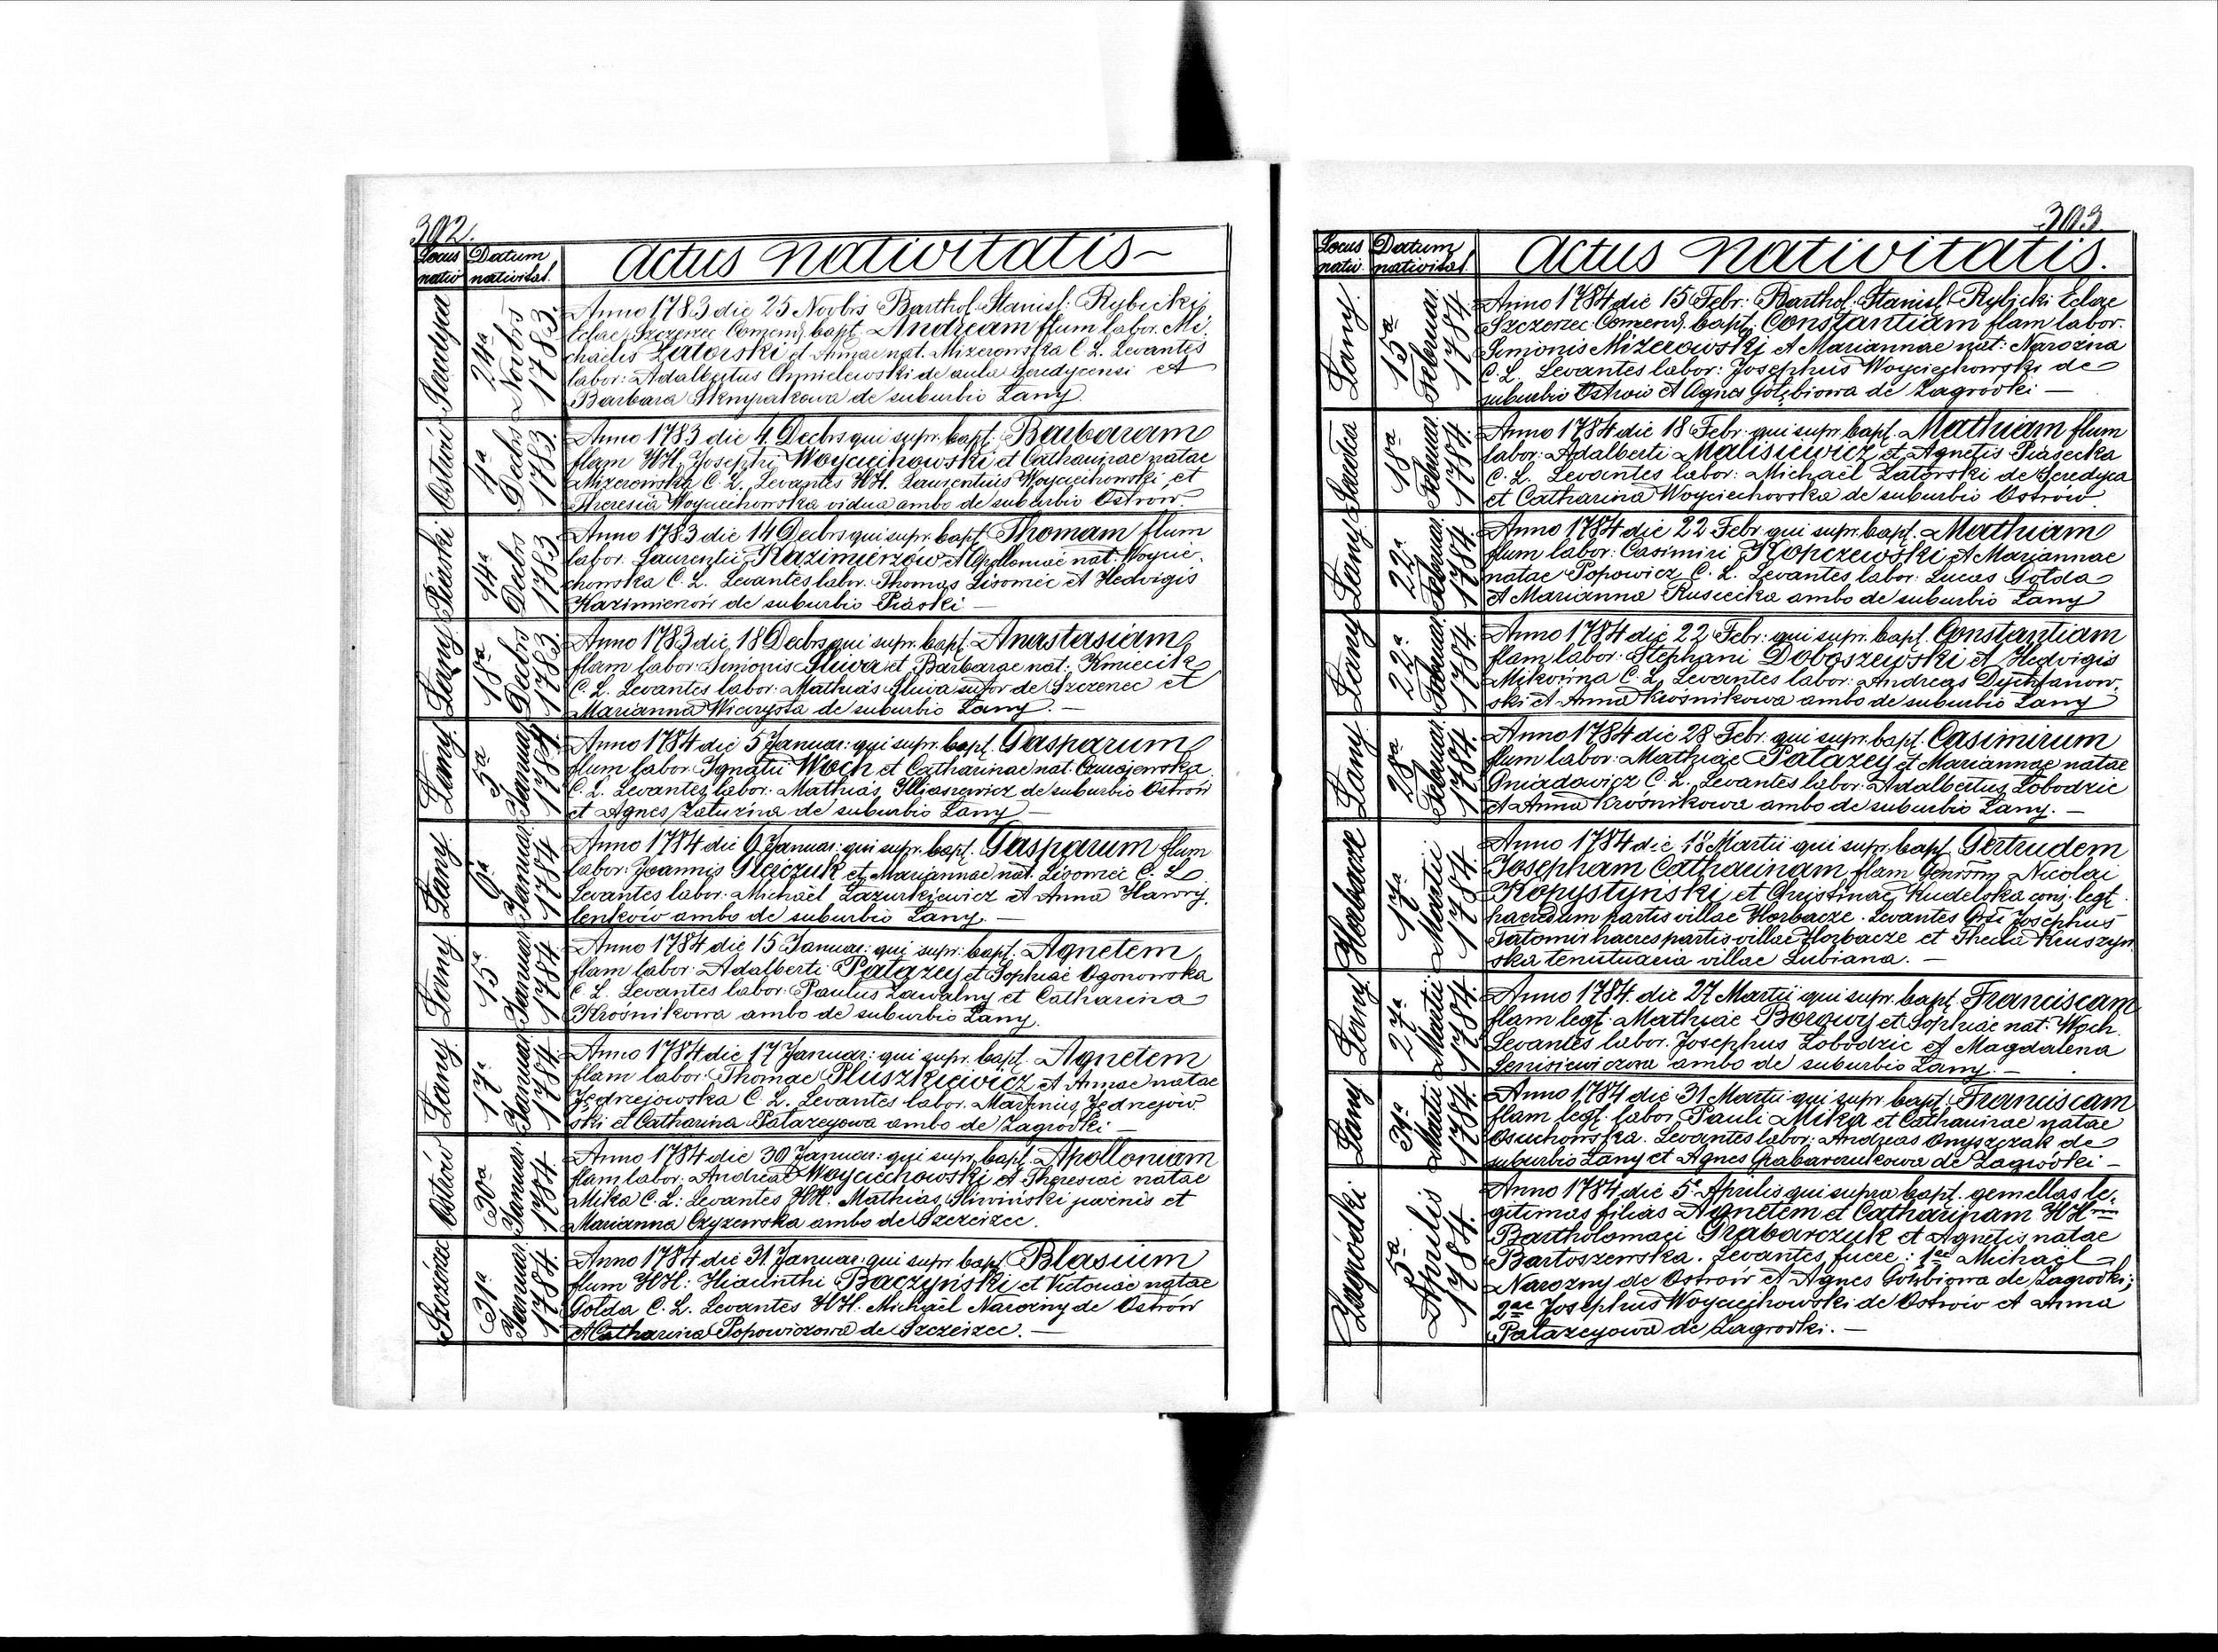 302.
Locus nativ
Datum nativitat.
Actus nativitatis
Seredyca
24a Novbrs 1783.
Anno 1783 die 25 Novbrs Barthol. Stanisl: Rybicki
Eclae Szczerzec Comend. bapt. Andream flum labor. Mi-
chaëlis Zatorski et Annae nat. Mizerowska C. L. Levantes
labor: Adalbertus Chmielewski de aula Seredycensi et
Barbara Sknypakowa de suburbio Łany.
Ostrów
4a Decbrs 1783.
Anno 1783 die 4. Decbrs qui supr. bapt. Barbaram
flam HH. Josephi Woyciechowski et Catharinae natae
Mizerowska C. L. Levantes HH. Laurentius Woyciechowski et
Theresia Woyciechowska vidua ambo de suburbio Ostrow.
Piaski
14a Decbrs 1783
Anno 1783 die 14 Decbrs qui supr. bapt. Thomam flum
labor. Laurentii Kazimierzów et Apolloniae nat. Woycie-
chowska C. L. Levantes labor. Thomas Lisowiec et Hedvigis
Kazimierzów de suburbio Piaski —
Łany
18a Decbrs 1783.
Anno 1783 die 18 Decbrs qui supr. bapt. Anastasiam
flam labor. Simonis Sliwa et Barbarae nat: Kmiecik
C. L. Levantes labor. Mathias Sliwa sutor de Szczerzec et
Marianna Wieczysta de suburbio Łany. —
Łany
5a Januar 1784.
Anno 1784 die 5 Januar: qui supr. bapt. Gasparum
flum labor. Ignatii Woch et Catharinae nat.
C. L. Levantes labor. Mathias Illiaszewicz de suburbio Ostrów
et Agnes Zaturzna de suburbio Łany —
Łany.
6a Januar 1784
Anno 1784 die 6 Januar: qui supr. bapt. Gasparum flum
labor: Joannis Tkaczuk et Mariannae nat. Lisowiec C. L.
Levantes labor: Michaël Lazurkiewicz et Anna Hawry-
lenków ambo de suburbio Łany. —
Łany
15a Januar 1784.
Anno 1784 die 15 Januar: qui supr: bapt. Agnetem
flam labor: Adalberti Patazey et Sophiae Ogonowska
C. L. Levantes labor: Paulus Zawalny et Catharina
Krośnikowa ambo de suburbio Łany.
Łany
17a Januar 1784.
Anno 1784 die 17 Januar: qui supr. bapt. Agnetem
flam labor: Thomae Pluszkiewicz et Annae natae
Jędrzejowska C. L. Levantes labor. Martinus Jędrzejow-
ski et Catharina Patazeyowa ambo de Zagrodki —
Ostrów
30a Januar. 1784.
Anno 1784 die 30 Januar: qui supr. bapt. Apolloniam
flam labor: Andreae Woyciechowski et Theresiae natae
Mika C. L: Levantes HH. Mathias Sliwiński juvenis et
Marianna Czyzewska ambo de Szczerzec.
Szczérzec
31a Januar. 1784.
Anno 1784 die 31 Januar: qui supr bapt. Blasium
flum HH: Hiacinthi Baczyński et Victoriae natae
Gołda C. L. Levantes HH. Michaël Narozny de Ostrów
et Catharina Popowiczowa de Szczerzec. —
303.
Locus nativ
Datum nativitat.
Actus nativitatis.
Łany.
15a Februar. 1784.
Anno 1784 die 15 Febr: Barthol. Stanisl. Rybicki Eclae
Szczerzec Comend. bapt. Constantiam flam labor.
Simonis Mizerowski et Mariannae nat: Narozna
C. L. Levantes labor: Josephus Woyciechowski de
suburbio Ostrow et Agnes Gołębiowa de Zagrodki —
18a Februar. 1784.
Anno 1784 die 18 Febr: qui supr. bapt. Mathiam flum
labor: Adalberti Malisiewicz et Agnetis Piasecka
C. L. Levantes labor: Michaël Zatorski de Seredyca
et Catharina Woyciechovska de suburbio Ostrów
Łany
22a Februar. 1784.
Anno 1784 die 22 Febr. qui supr. bapt. Mathiam
flum labor: Casimiri Kopczewski et Mariannae
natae Popowicz C. L. Levantes labor: Lucas Gołda
et Marianna Rusiecka ambo de suburbio Łany
Łany
22a Februar. 1784.
Anno 1784 die 22 Febr: qui supr. bapt. Constantiam
flam labor: Stephani Doboszewski et Hedvigis
Mikowna C. L. Levantes labor: Andreas Dychtanow-
ski et Anna Krośnikowa ambo de suburbio Łany
Łany.
28a Februar. 1784.
Anno 1784 die 28 Febr: qui supr. bapt. Casimirum
flum labor: Mathiae Patazey et Mariannae natae
Gniadowicz C. L. Levantes labor: Adalbertus Łobodzic
et Anna Krośnikowa ambo de suburbio Łany. —
Horbacze
17a Martii 1784.
Anno 1784 die 18 Martii qui supr. bapt. Gertrudem
Josepham Catharinam flam Nicolai
Kopystyński et Christinae Kudelska conj. legt.
haeredum partis villae Horbacze. Levantes Josephus
Tatomir haeres partis villae Horbacze et Thecla Kruszyn-
ska tenutuaria villae Lubiana. —
Łany
27a Martii 1784.
Anno 1784. die 27 Martii qui supr. bapt. Franciscam
flam legt. Mathiae Borowy et Sophiae nat. Woch.
Levantes labor. Josephus Łobodzic et Magdalena
Senisiewiczowa ambo de suburbio Łany. —
Łany
31a Martii 1784.
Anno 1784 die 31 Martii qui supr bapt. Franciscam
flam legt. labor. Pauli Mika et Catharinae natae
Osuchowska. Levantes labor: Andreas Onyszczak de
suburbio Łany et Agnes Grabarczukowa de Zagródki —
Zagródki
5a Aprilis 1784.
Anno 1784 die 5e Aprilis qui supra bapt. gemellas le-
gitimas filias Agnetem et Catharinam HH
Bartholomaei Grabarczuk et Agnetis natae
Bartoszewska. Levantes fuere: 1ae Michaël
Narozny de Ostrow et Agnes Gołębiowa de Zagrodki;
2ae Josephus Woyciechowski de Ostrow et Anna
Patazeyowa de Zagrodki. —